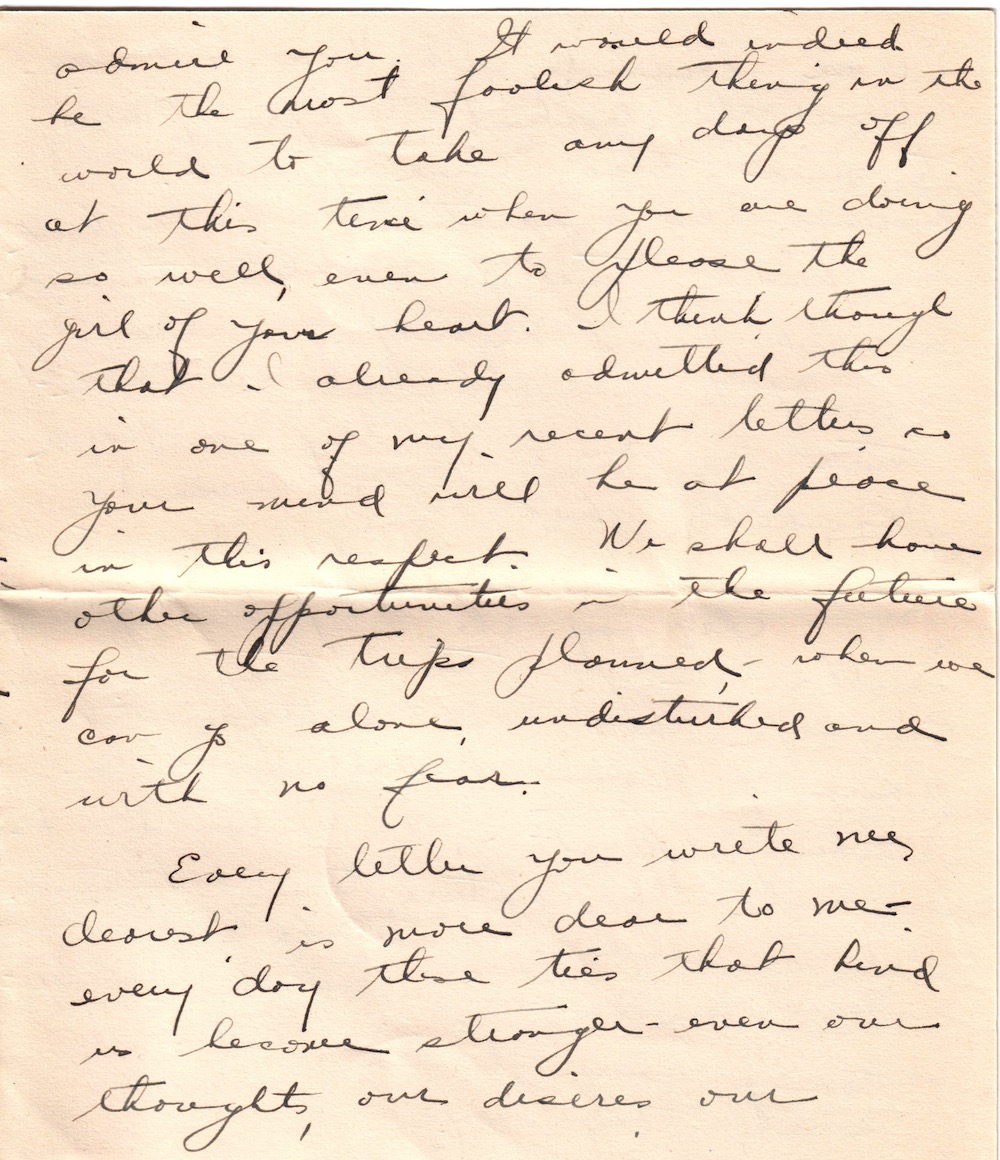 admire you. It would indeed
be the most foolish thing in the
world to take any days off
at this time when you are doing
so well, even to please the
girl of your heart. I think though
that I already admitted this
in one of my recent letters so
your mind will be at peace
in this respect. We shall have
other opportunities in the future
for the trips planned, - when we
can go alone, undisturbed and
with no fear.
Every letter you write me,
dearest is more dear to me -
every day these ties that bind
us become stronger - even our
thoughts, our desires our